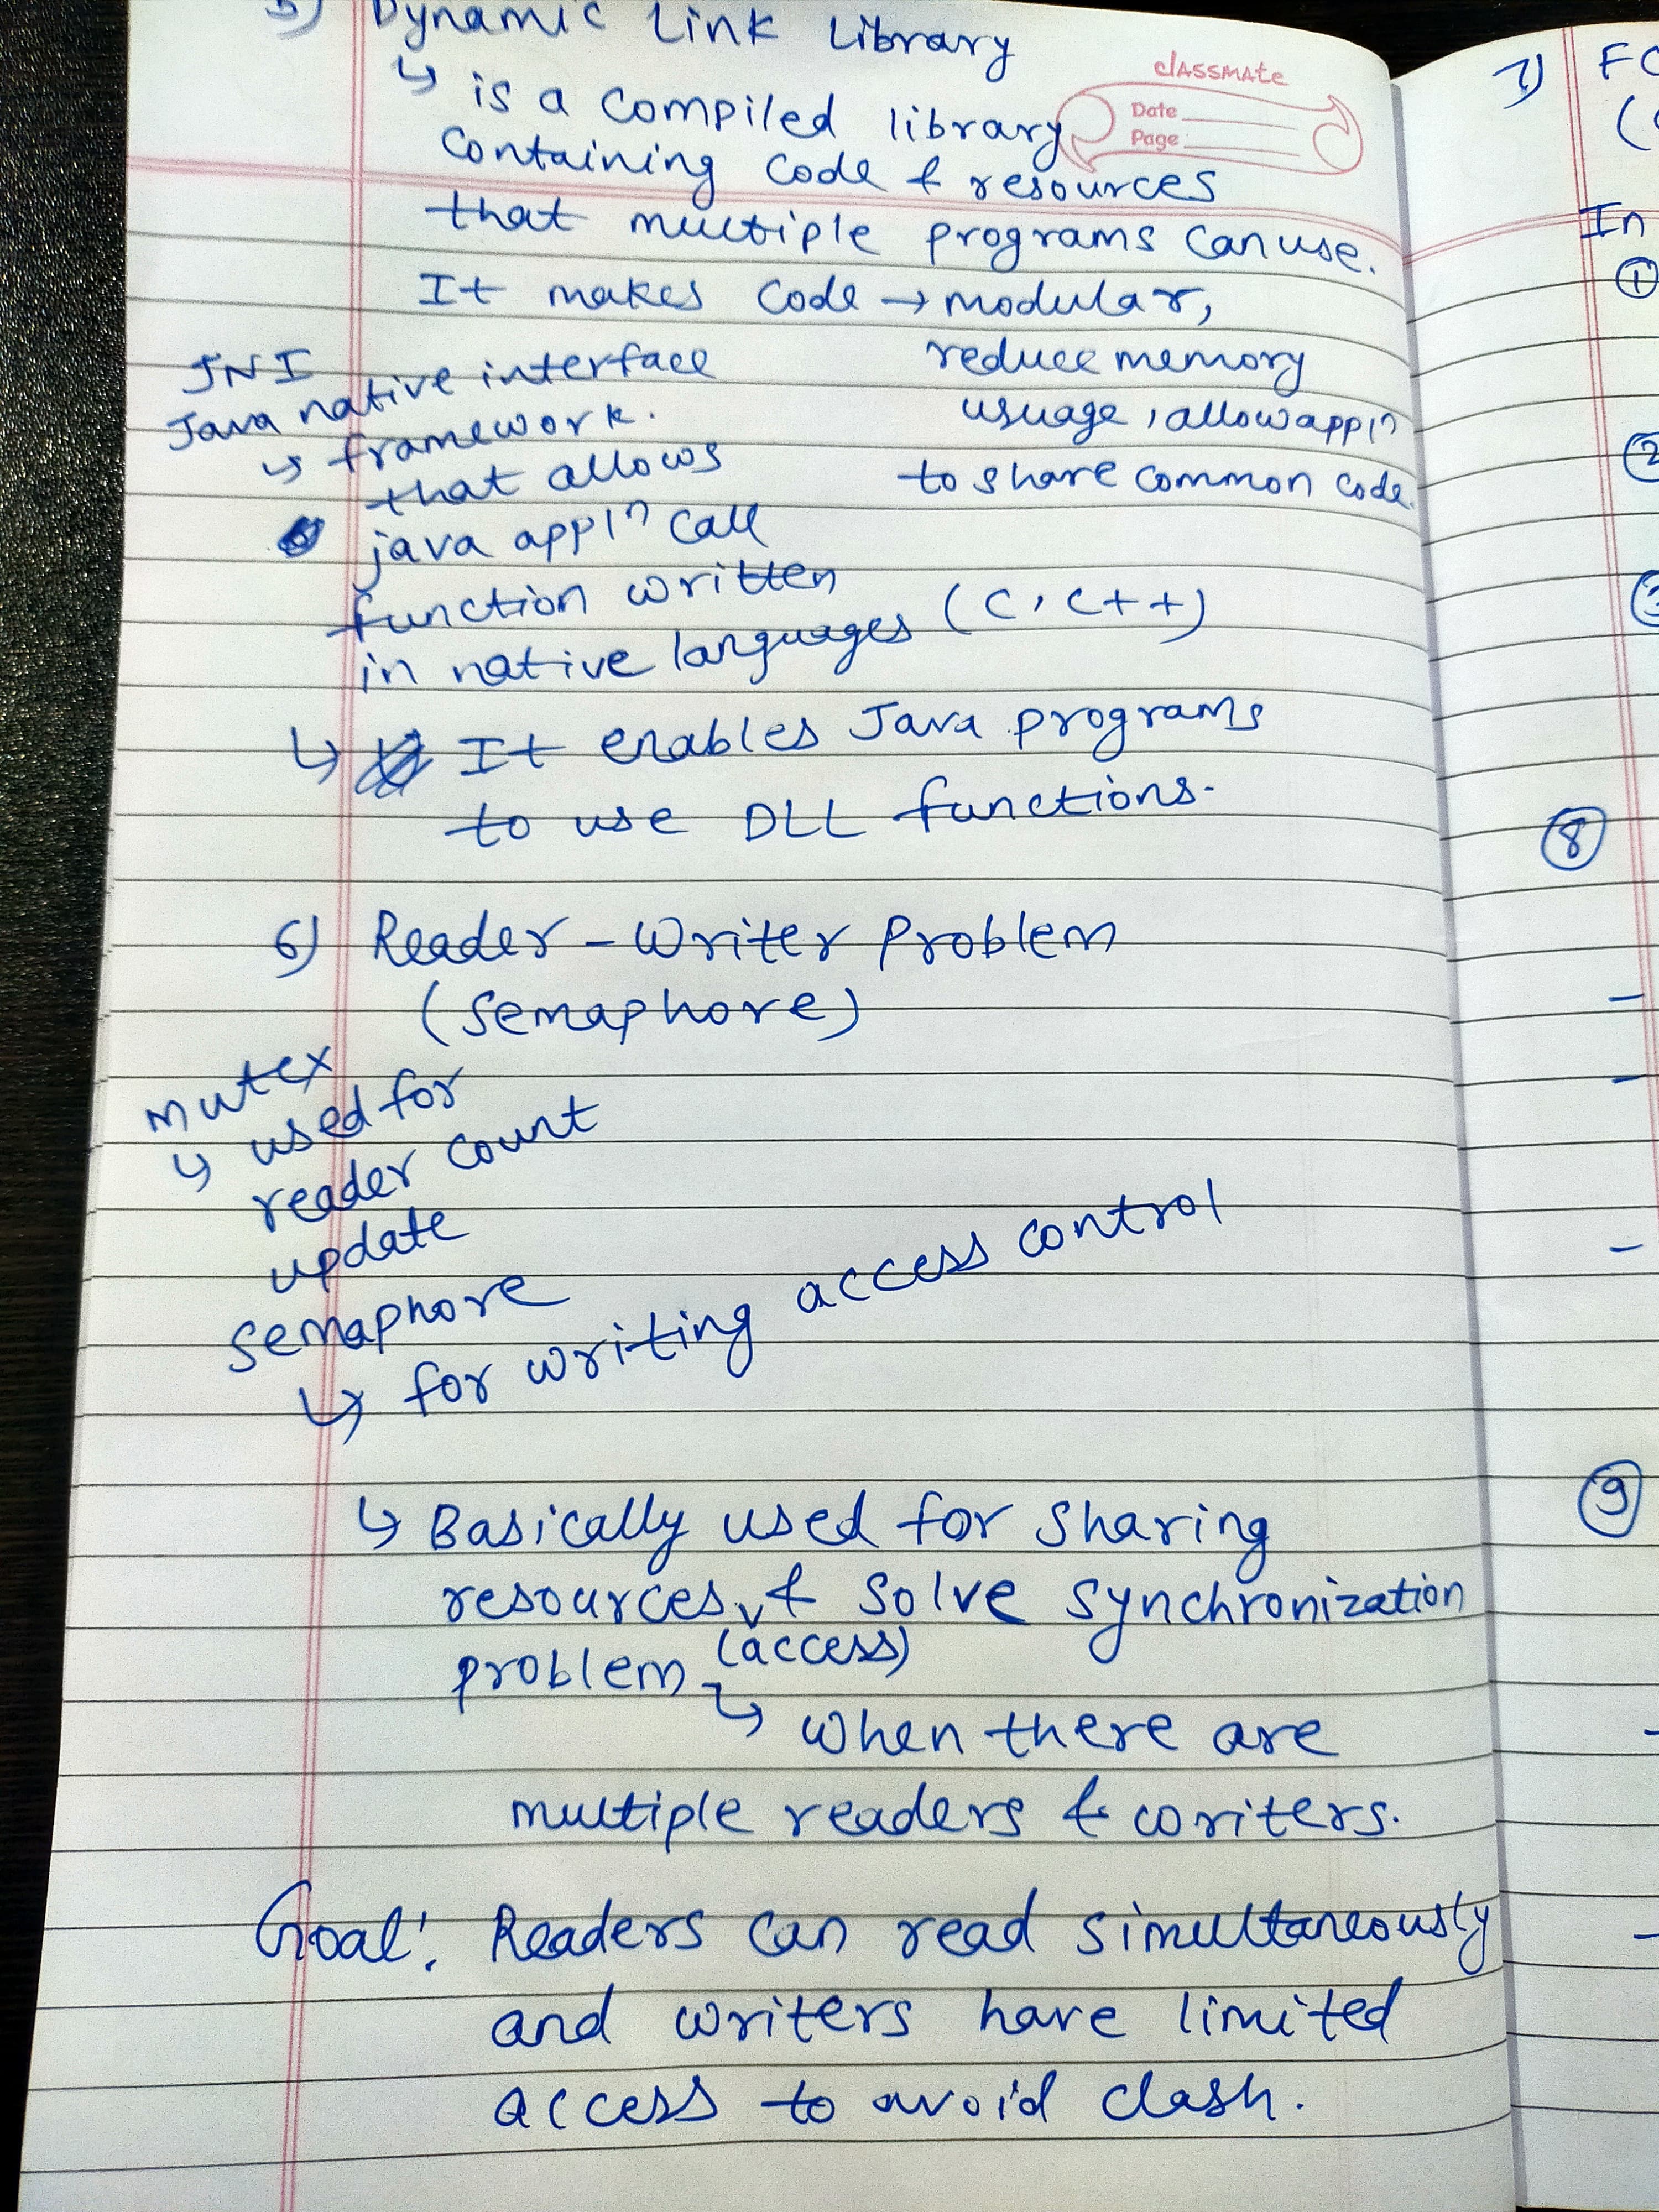 5) Dynamic Link Library
↳ is a compiled library
containing code & resources
that multiple programs can use.
It makes code → modular,
reduce memory
usuage, allow appln
to share common code.
classmate
Date
Page
JNI
Java native interface
↳ framework.
that allows
java appln call
function written
in native languages (C, C++)
↳ It enables Java programs
to use DLL functions.
6) Reader-Writer Problem
(Semaphore)
mutex
↳ used for
reader count
update
Semaphore
↳ for writing access control
↳ Basically used for sharing
resources & solve synchronization
(access)
problem
↳ when there are
multiple readers & writers.
Goal: Readers can read simultaneously
and writers have limited
access to avoid clash.
7) FC
(
In
①
②
③
⑧
-
-
-
⑨
-
-